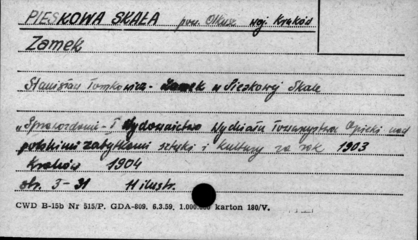 PIESKOWA SKAŁA pow. Olkusz woj. Kraków
Zamek
Stanisław Tomkowicz - Zamek w Pieskowej Skale
„Sprawozdanie i wydawnictwo Wydziału Towarzystwa Opieki nad
polskimi zabytkami sztuki i kultury za rok 1903
Kraków 1904
str. 3-31 11 ilustr.
CWD B-15b Nr 515/P. GDA-809. 6.3.59. 1.000.000 karton 180/V.